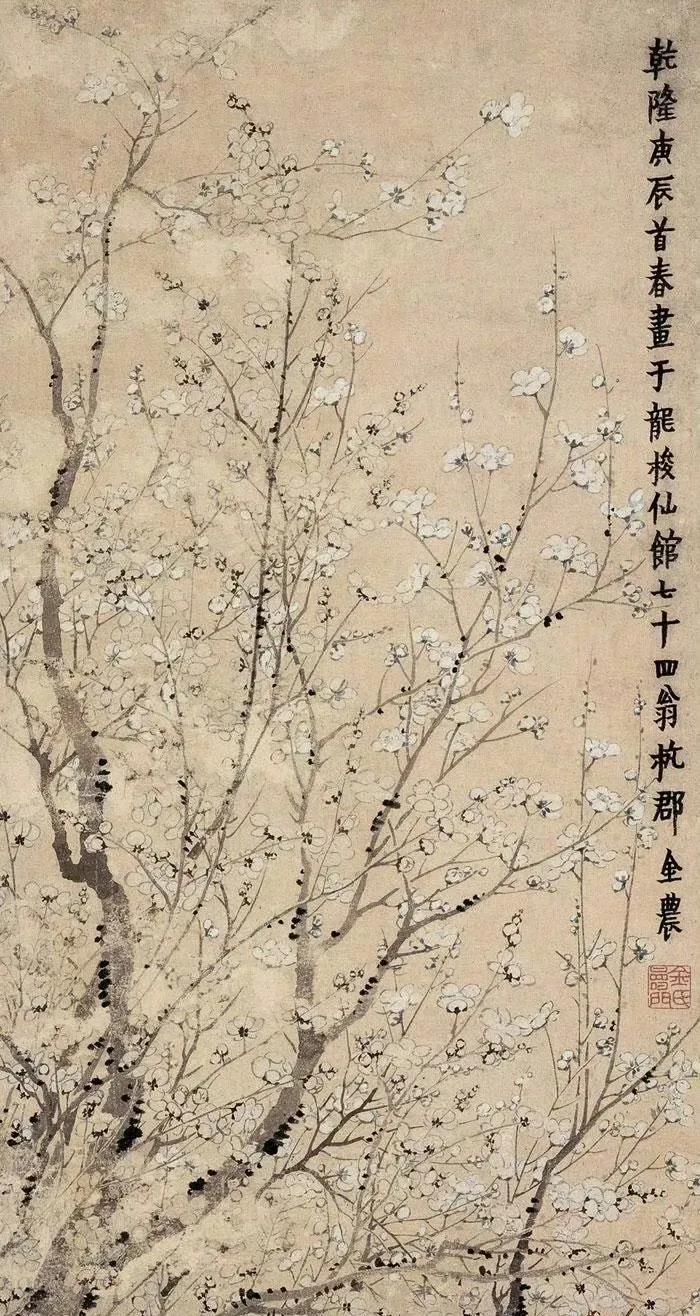 乾隆庚辰首春畫于龍梭仙館七十四翁杭郡金農
金氏